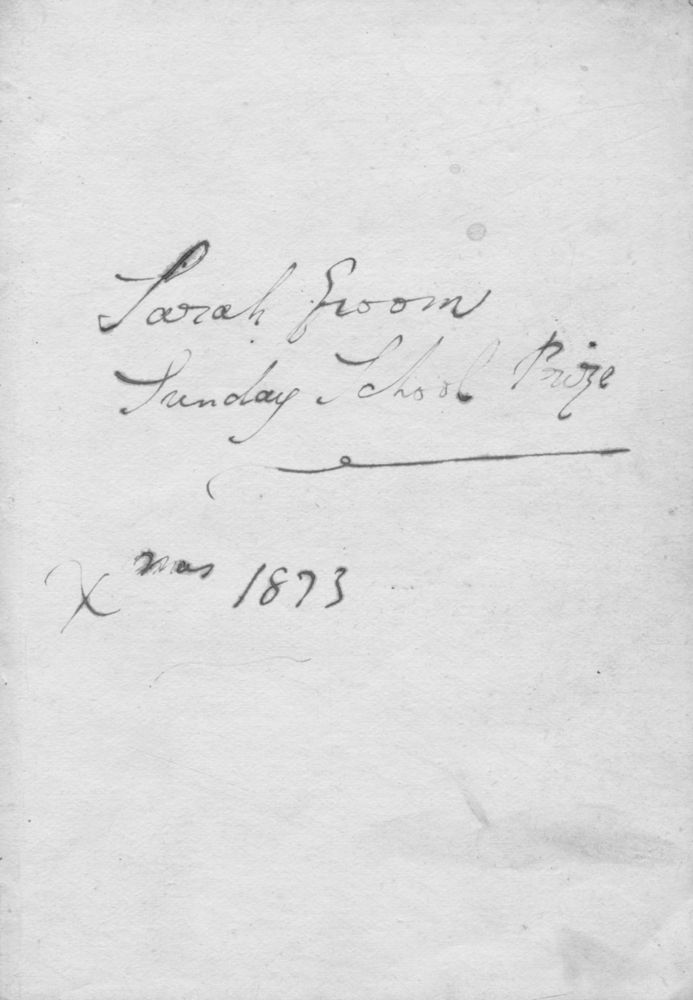 Sarah Groom
Sunday School Prize
Xmas 1873